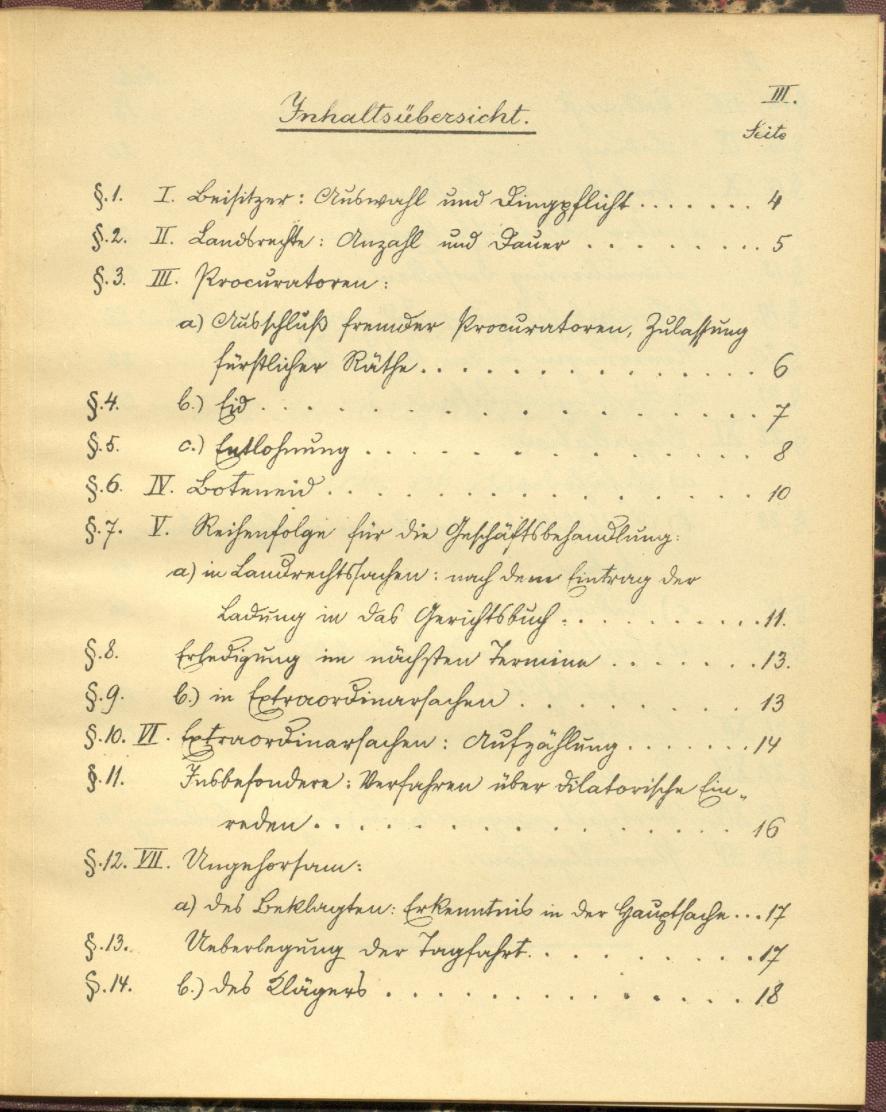 III.
Inhaltsübersicht.
Seite
§.1. I. Beisitzer: Auswahl und Dingpflicht ....... 4
§.2. II. Landrechte: Anzahl und Dauer ......... 5
§.3. III. Procuratoren:
a) Ausschluß fremder Procuratoren, Zulassung
fürstlicher Räthe ............... 6
§.4. b.) Eid ............... 7
§.5. c.) Entlohnung ............... 8
§.6. IV. Boteneid ............... 10
§.7. V. Reihenfolge für die Geschäftsbehandlung:
a) in Landrechtssachen: nach dem Eintrag der
Ladung in das Gerichtsbuch .......... 11.
§.8. Erledigung im nächsten Termine ....... 13.
§.9. b.) in Extraordinarsachen ......... 13
§.10. VI. Extraordinarsachen: Aufzählung ....... 14
§.11. Insbesondere: Verfahren über dilatorische Ein-
reden ............... 16
§.12. VII. Ungehorsam:
a) des Beklagten: Erkenntnis in der Hauptsache ... 17
§.13. Ueberlegung der Tagfahrt ......... 17
§.14. b.) des Klägers ............. 18